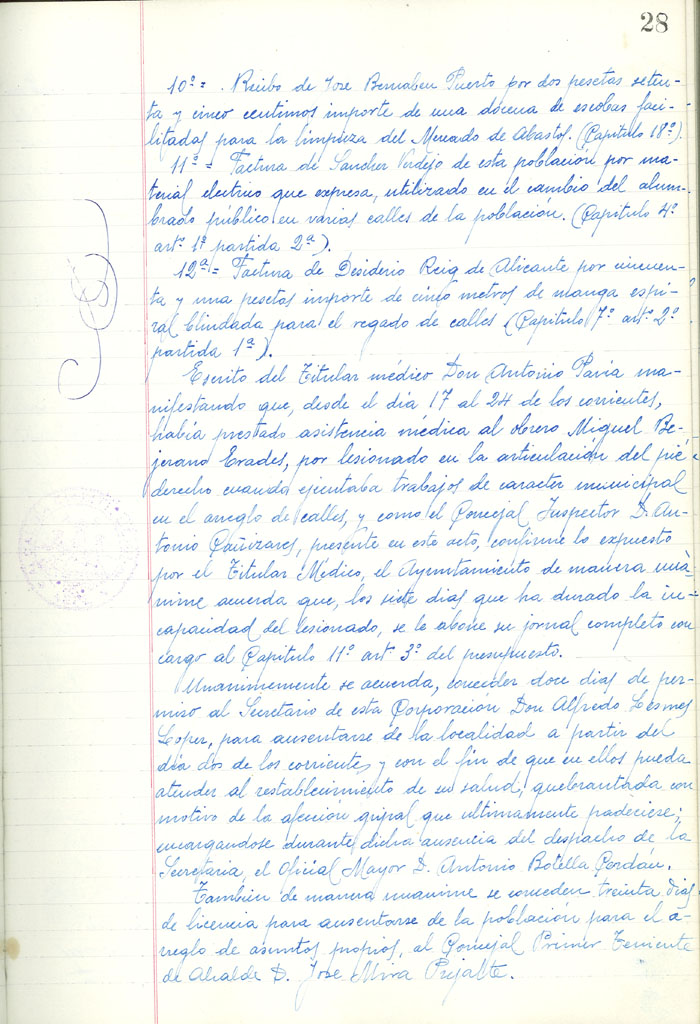 28
10º = . Recibo de Jose Bernabeu Puerto por dos pesetas seten-
ta y cinco centimos importe de una docena de escobas faci-
litadas para la limpieza del Mercado de Abastos. (Capitulo 18º).
11º = Factura de Sanchez Verdejo de esta poblacion por ma-
terial electrico que expresa, utilizado en el cambio del alum-
brado público en varias calles de la población. (Capitulo 4º
artº 1º partida 2ª).
12ª = Factura de Desiderio Reig de Alicante por cincuen-
ta y una pesetas importe de cinco metros de manga espi-
ral blindada para el regado de calles (Capitulo 7º artº 2º
partida 1ª).
Escrito del Titular médico Don Antonio Pavia ma-
nifestando que, desde el dia 17 al 24 de los corrientes,
había prestado asistencia médica al obrero Miguel Be-
jerano Erades, por lesionado en la articulación del pié
derecho cuando ejecutaba trabajos de caracter municipal
en el arreglo de calles, y como el Concejal Inspector D. An-
tonio Cañizares, presente en este acto, confirme lo expuesto
por el Titular Médico, el Ayuntamiento de manera uná-
nime acuerda que, los siete dias que ha durado la in-
capacidad del lesionado, se le abone su jornal completo con
cargo al Capitulo 11º artº 3º del presupuesto.
Unanimemente se acuerda, conceder doce dias de per-
miso al Secretario de esta Corporación Don Alfredo Lesmes
Loper, para ausentarse de la localidad a partir del
día dos de los corrientes y con el fin de que en ellos pueda
atender al restablecimiento de su salud, quebrantada con
motivo de la afección gripal que ultimamente padeciese;
encargandose durante dicha ausencia del despacho de la
Secretaria, el Oficial Mayor D. Antonio Botella Cerdán.
Tambien de manera unanime se conceden treinta dias
de licencia para ausentarse de la población para el a-
rreglo de asuntos propios, al Concejal Primer Teniente
de Alcalde D. Jose Mira Prijalte.